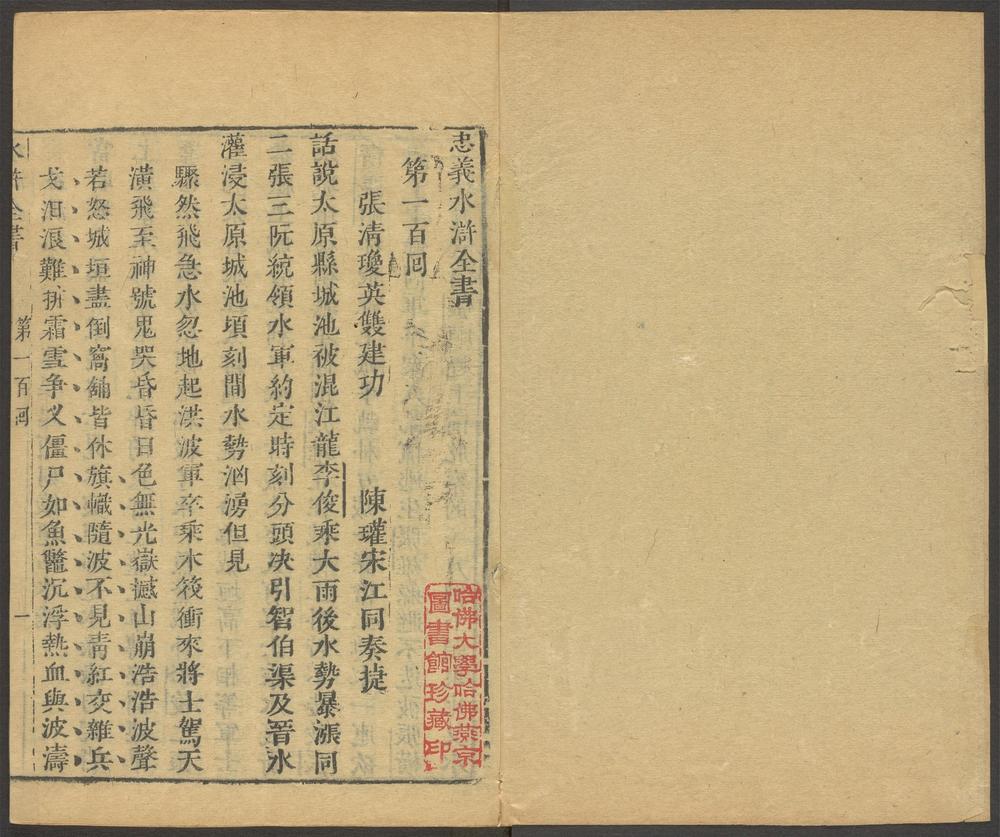 忠義水滸全書
第一百回
張淸瓊英雙建功　陳瓘宋江同奏捷
話說太原縣城池被混江龍李俊乘大雨後水勢暴漲同
二張三阮統領水軍約定時刻分頭决引智伯渠及晉水
灌浸太原城池頃刻間水勢洶湧但見
驟然飛急水忽地起洪波軍卒乘木筏衝來將士駕天
潢飛至神號鬼哭昏昏日色無光嶽撼山崩浩浩波聲
若怒城垣盡倒窩鋪皆休旗幟隨波不見靑紅交雜兵
戈汨浪難拚霜雪爭叉僵尸如魚鼈沉浮熱血與波濤
水滸全書　第一百回　一
哈佛大學哈佛燕京
圖書館珍藏印